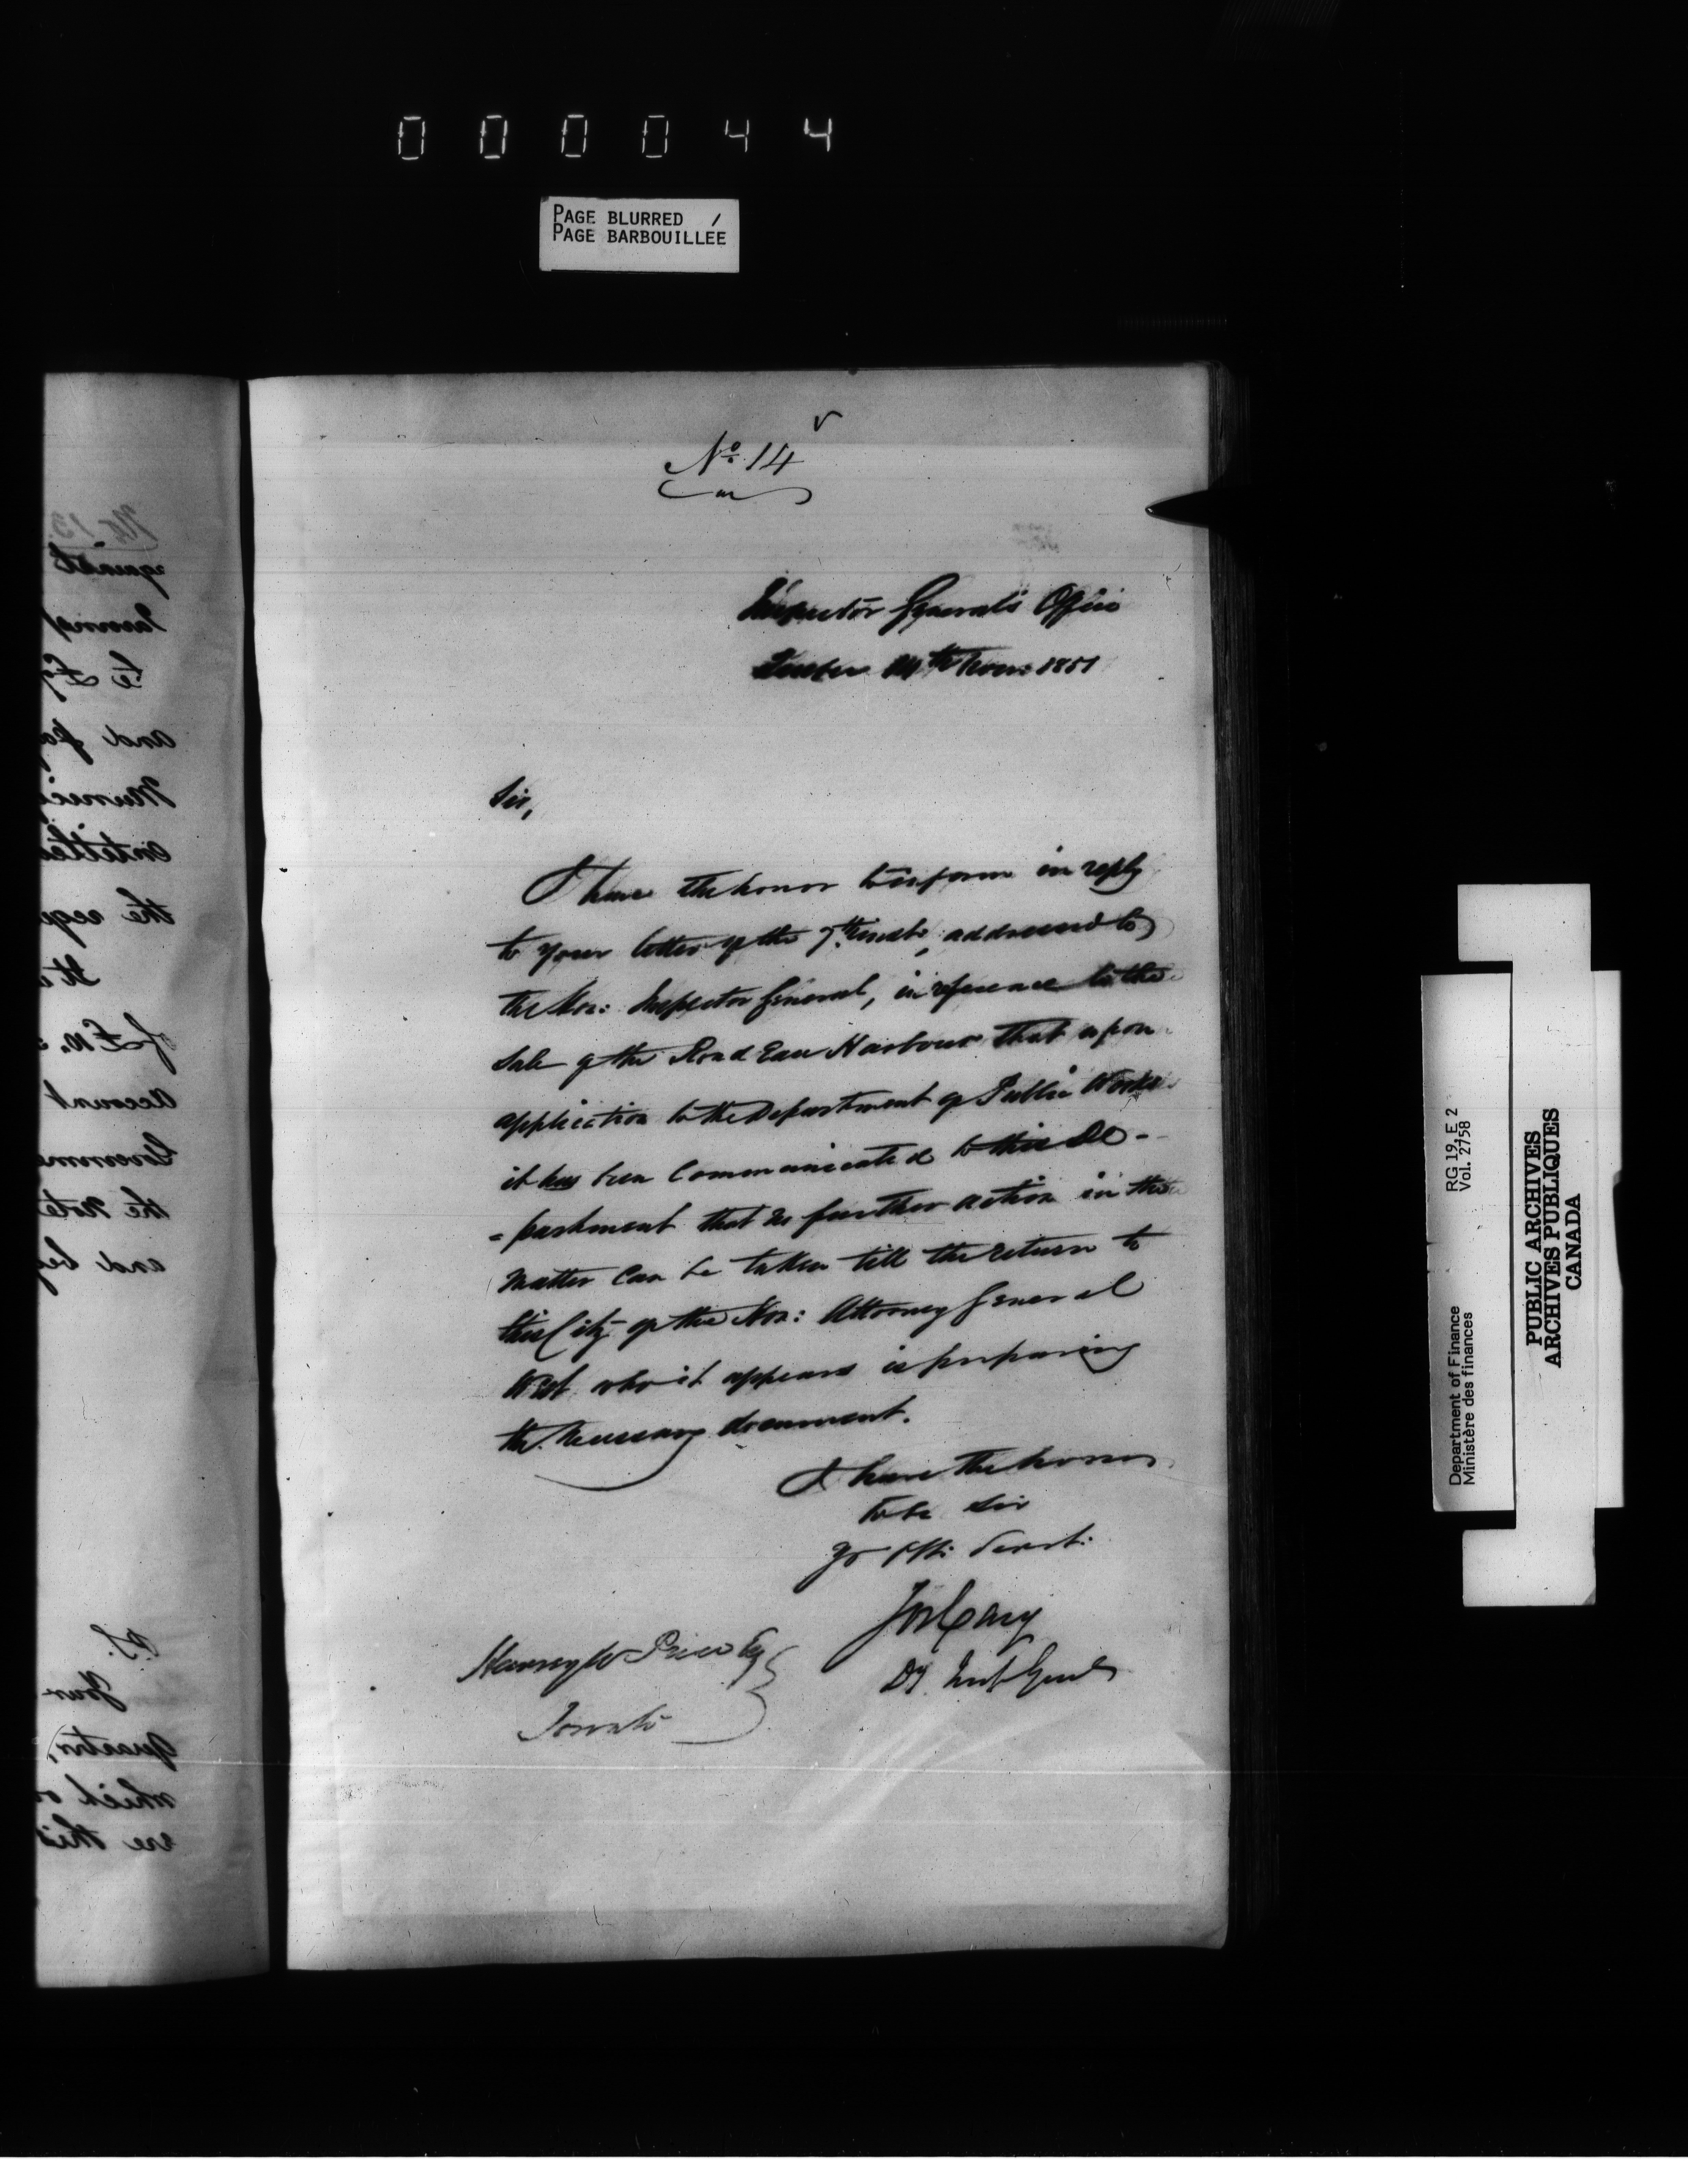 000044
PAGE BLURRED /
PAGE BARBOUILLÉE
No. 14
Inspector General's Office
Quebec 14th Nov: 1851
Sir,
I have the honor to inform in reply
to your letter of the 7th inst:, addressed to
the Hon: Inspector General, in reference to the
Sale of the Rond Eau Harbour that upon
application to the Department of Public Works
it has been communicated to this De-
=partment that no further action in the
matter can be taken till the return to
this City of the Hon: Attorney General
West who it appears is preparing
the necessary document.
I have the honor
to be Sir
Yr Obt: Servt:
Jos Cary
Dy. Insp Genl
Harvey W Price Esq
Toronto
No. 13.
against
and
entitled
the
It
account
the Note
and
P.S.
which
are this
RG 19, E 2
Vol. 2758
Department of Finance
Ministère des finances
PUBLIC ARCHIVES
ARCHIVES PUBLIQUES
CANADA